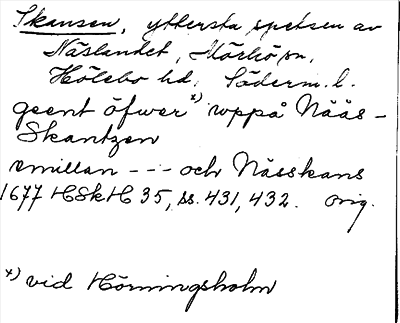 Skansen, yttersta spetsen av
Näslandet, Mörkö sn,
Hölebo hd. Söderm. l.
geent öfwer x) wppå Nääs-
Skantzen
emillan --- och Nässkans
1677 HSkH 35, ss. 431, 432. orig.
x) vid Hörningsholm